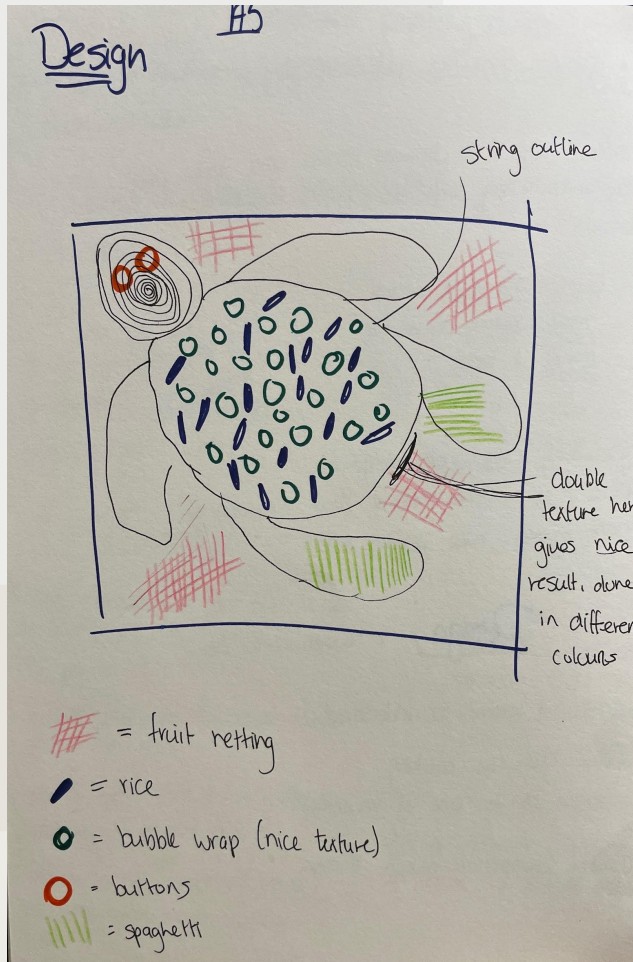 A5
Design
string outline
double
texture her
gives nice
result, done
in differen
colours
= fruit netting
= rice
= bubble wrap (nice texture)
= buttons
= spaghetti